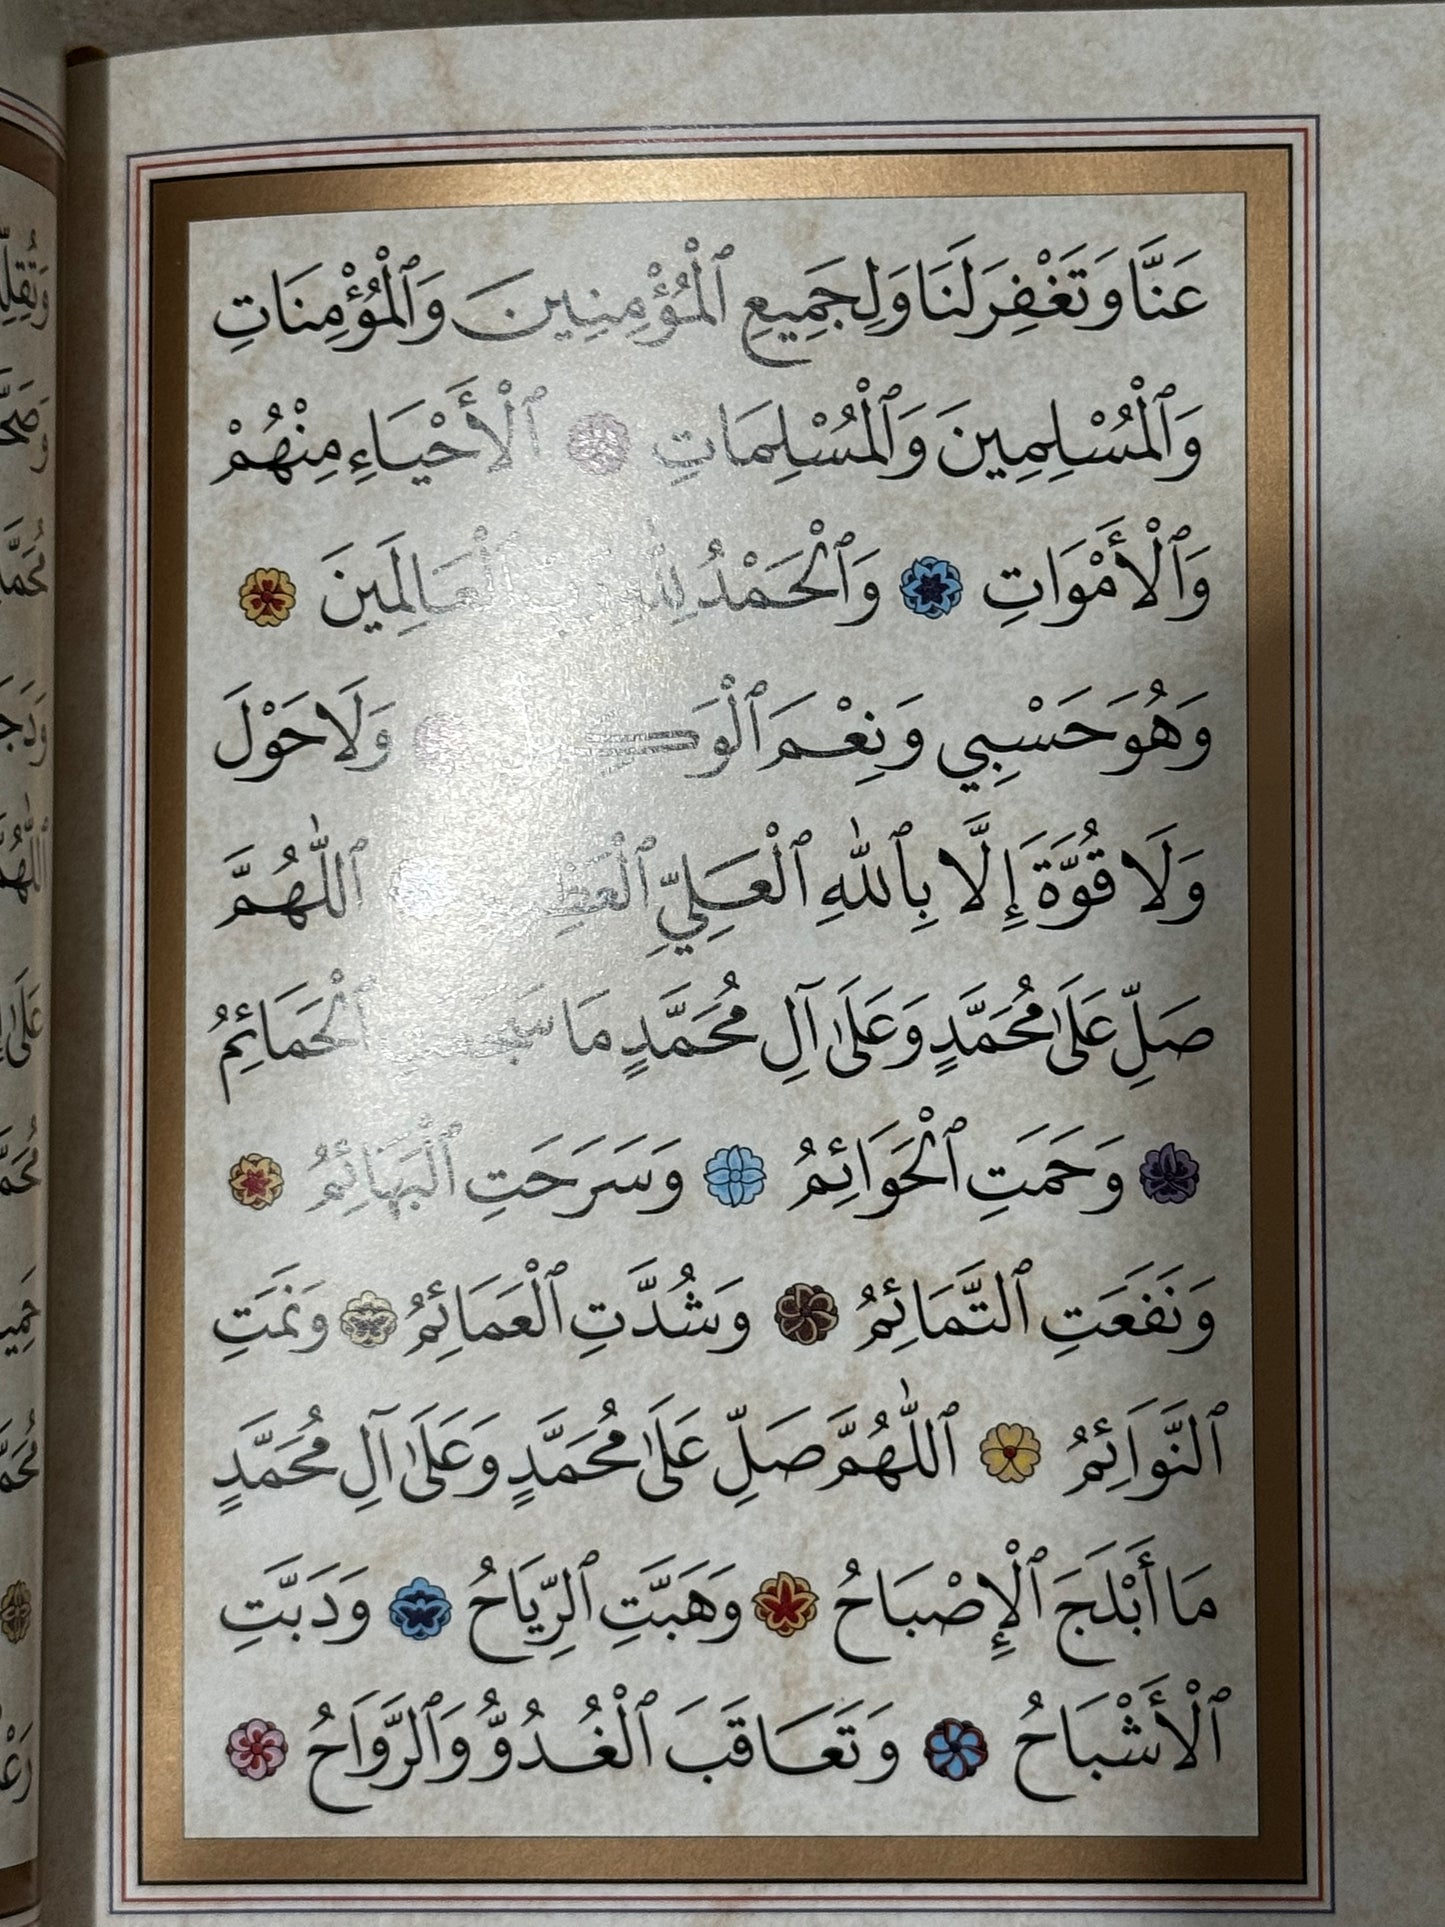 عَنَّا وَتَغْفِرَ لَنَا وَلِجَمِيعِ ٱلْمُؤْمِنِينَ وَٱلْمُؤْمِنَاتِ
وَٱلْمُسْلِمِينَ وَٱلْمُسْلِمَاتِ ٱلْأَحْيَاءِ مِنْهُمْ
وَٱلْأَمْوَاتِ وَٱلْحَمْدُ لِلّٰهِ رَبِّ ٱلْعَالَمِينَ
وَهُوَ حَسْبِي وَنِعْمَ ٱلْوَكِيلُ وَلَا حَوْلَ
وَلَا قُوَّةَ إِلَّا بِٱللّٰهِ ٱلْعَلِيِّ ٱلْعَظِيمِ ٱللّٰهُمَّ
صَلِّ عَلَىٰ مُحَمَّدٍ وَعَلَىٰ آلِ مُحَمَّدٍ مَا سَجَعَتِ ٱلْحَمَائِمُ
وَحَمَتِ ٱلْحَوَائِمُ وَسَرَحَتِ ٱلْبَهَائِمُ
وَنَفَعَتِ ٱلتَّمَائِمُ وَشُدَّتِ ٱلْعَمَائِمُ وَنَمَتِ
ٱلنَّوَائِمُ ٱللّٰهُمَّ صَلِّ عَلَىٰ مُحَمَّدٍ وَعَلَىٰ آلِ مُحَمَّدٍ
مَا أَبْلَجَ ٱلْإِصْبَاحُ وَهَبَّتِ ٱلرِّيَاحُ وَدَبَّتِ
ٱلْأَشْبَاحُ وَتَعَاقَبَ ٱلْغُدُوُّ وَٱلرَّوَاحُ